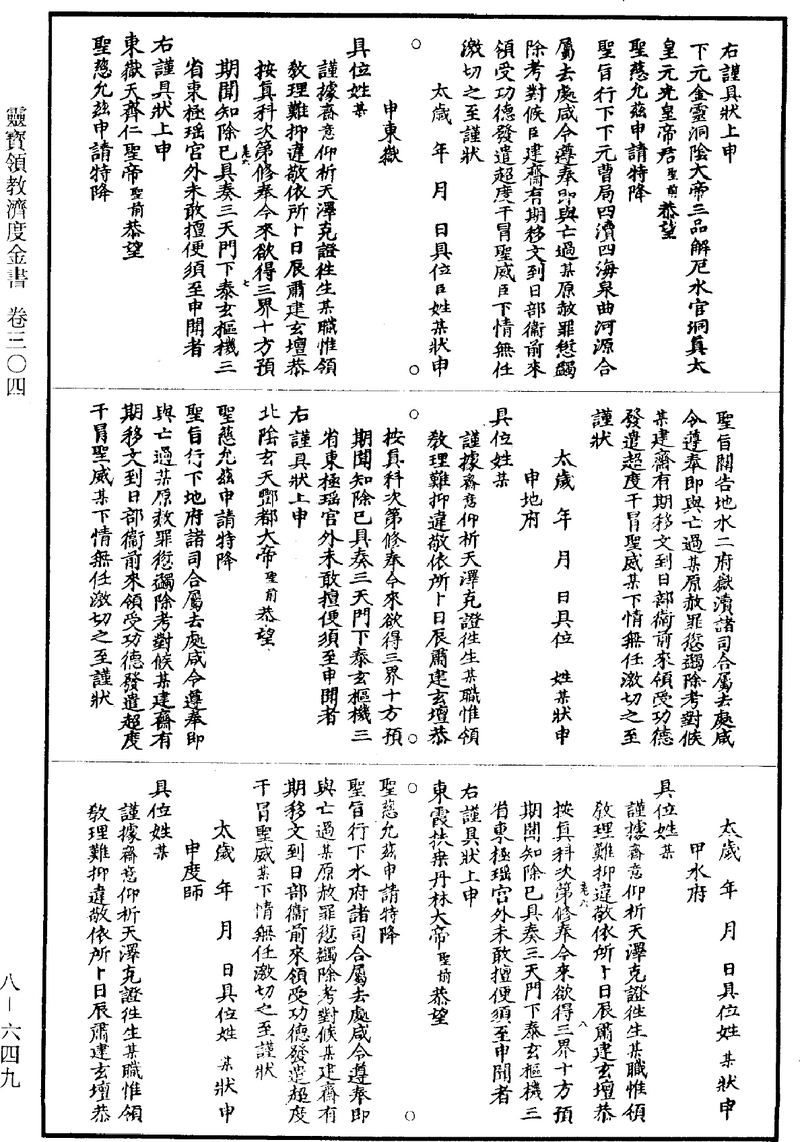 右謹具狀上申
下元金靈洞陰大帝三品解厄水官洞真太
皇元光皇帝君聖前恭望
聖慈允茲申請特降
聖旨行下下元曹局四瀆四海泉曲河源合
屬去處咸令遵奉即與亡過某原赦罪愆蠲
除考對候臣建齋有期移文到日部衞前來
領受功德發遣超度干冒聖威臣下情無任
激切之至謹狀
太歲　年　月　日具位臣姓某狀申
○　○
申東嶽
具位姓某
謹據齋意仰祈天澤克證徃生某職惟領
教理難抑違敬依所卜日辰肅建玄壇恭
按真科次第修奉今來欲得三界十方預
卷六　七
期聞知除已具奏三天門下泰玄樞機三
省東極瑶宫外未敢擅便須至申聞者
右謹具狀上申
東嶽天齊仁聖帝聖前恭望
聖慈允茲申請特降
聖旨關告地水二府嶽瀆諸司合屬去處咸
令遵奉即與亡過某原赦罪愆蠲除考對候
某建齋有期移文到日部衞前來領受功德
發遣超度干冒聖威某下情無任激切之至
謹狀
太歲　年　月　日具位　姓某狀申
申地府
具位姓某
謹據齋意仰祈天澤克證徃生某職惟領
教理難抑違敬依所卜日辰肅建玄壇恭
○　○
按真科次第修奉今來欲得三界十方預
期聞知除已具奏三天門下泰玄樞機三
省東極瑶宫外未敢擅便須至申聞者
右謹具狀上申
北陰玄天酆都大帝聖前恭望
聖慈允茲申請特降
聖旨行下地府諸司合屬去處咸令遵奉即
與亡過某原赦罪愆蠲除考對候某建齋有
期移文到日部衞前來領受功德發遣超度
干冒聖威某下情無任激切之至謹狀
太歲　年　月　日具位姓　某狀申
申水府
具位姓某
謹據齋意仰祈天澤克證徃生某職惟領
教理難抑違敬依所卜日辰肅建玄壇恭
卷六　八
按真科次第修奉今來欲得三界十方預
期聞知除已具奏三天門下泰玄樞機三
省東極瑶宫外未敢擅便須至申聞者
右謹具狀上申
東霞扶桒丹林大帝聖前恭望
○　○
聖慈允茲申請特降
聖旨行下水府諸司合屬去處咸令遵奉即
與亡過某原赦罪愆蠲除考對候某建齋有
期移文到日部衞前來領受功德發遣超度
干冒聖威某下情無任激切之至謹狀
太歲　年　月　日具位姓　某狀申
申度師
具位姓某
謹據齋意仰祈天澤克證徃生某職惟領
教理難抑違敬依所卜日辰肅建玄壇恭
靈寶領教濟度金書　卷三〇四
八－六四九